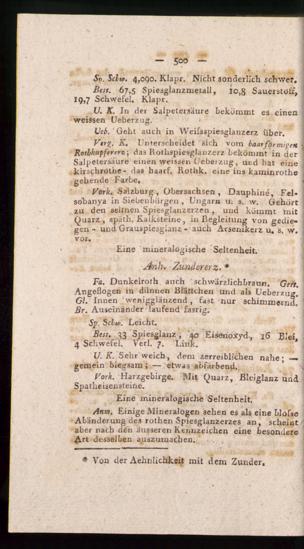 — 500 —
Sp. Schw. 4,090. Klapr. Nicht sonderlich schwer.
Best. 67,5 Spiesglanzmetall, 10,8 Sauerstoff,
19,7 Schwefel. Klapr.
U. K. In der Salpetersäure bekömmt es einen
weissen Ueberzug.
Ueb. Geht auch in Weissspiesglanzerz über.
Verg. K. Unterscheidet sich vom haarförmigen
Rothkupfererz; das Rothspiesglanzerz bekömmt in der
Salpetersäure einen weissen Ueberzug, und hat eine
kirschrothe - das haarf. Rothk. eine ins kaminrothe
gehende Farbe.
Vork. Salzburg, Obersachsen, Dauphiné, Fel-
sobanya in Siebenbürgen, Ungarn u. s. w. Gehört
zu den seltnen Spiesglanzerzen, und kömmt mit
Quarz, späth. Kalksteine, in Begleitung von gedie-
gen - und Grauspiesglanz - auch Arsenikerz u. s. w.
vor.
Eine mineralogische Seltenheit.
Anh. Zundererz. *
Fa. Dunkelroth auch schwärzlichbraun. Gest.
Angeflogen in dünnen Blättchen und als Ueberzug.
Gl. Innen wenigglänzend, fast nur schimmernd.
Br. Auseinander laufend fasrig.
Sp. Schw. Leicht.
Best. 33 Spiesglanz, 40 Eisenoxyd, 16 Blei,
4 Schwefel. Verl. 7. Link.
U. K. Sehr weich, dem zerreiblichen nahe; —
gemein biegsam; — etwas abfärbend.
Vork. Harzgebirge. Mit Quarz, Bleiglanz und
Spatheisensteine.
Eine mineralogische Seltenheit.
Anm. Einige Mineralogen sehen es als eine blosse
Abänderung des rothen Spiesglanzerzes an, scheint
aber nach den äusseren Kennzeichen eine besondere
Art desselben auszumachen.
* Von der Aehnlichkeit mit dem Zunder.